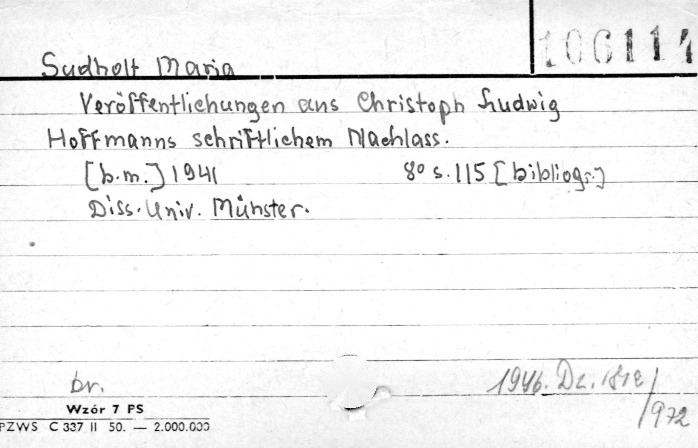 106114
Sudholt Maria
Veröffentlichungen aus Christoph Ludwig
Hoffmanns schriftlichem Nachlass.
[b.m.] 1941 8° s. 115 [bibliogr.]
Diss. Univ. Münster.
br. 1946. Dz. 1812/972
Wzór 7 PS
PZWS C 337 II 50. — 2.000.000